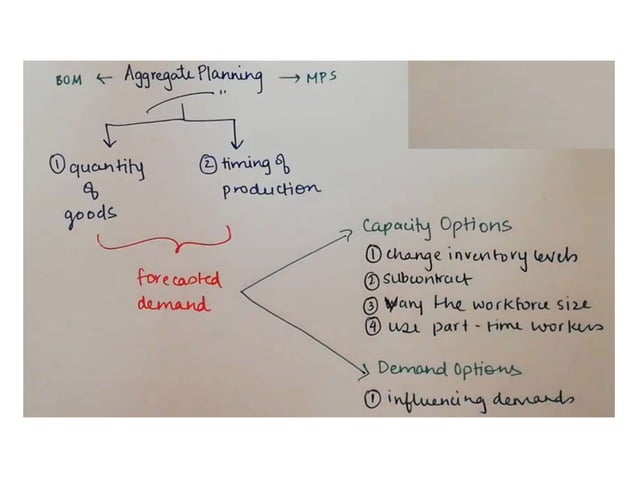 BOM ← Aggregate Planning → MPS
① quantity of goods
② timing of production
forecasted demand
Capacity Options
① change inventory levels
② subcontract
③ vary the workforce size
④ use part-time workers
Demand Options
① influencing demands